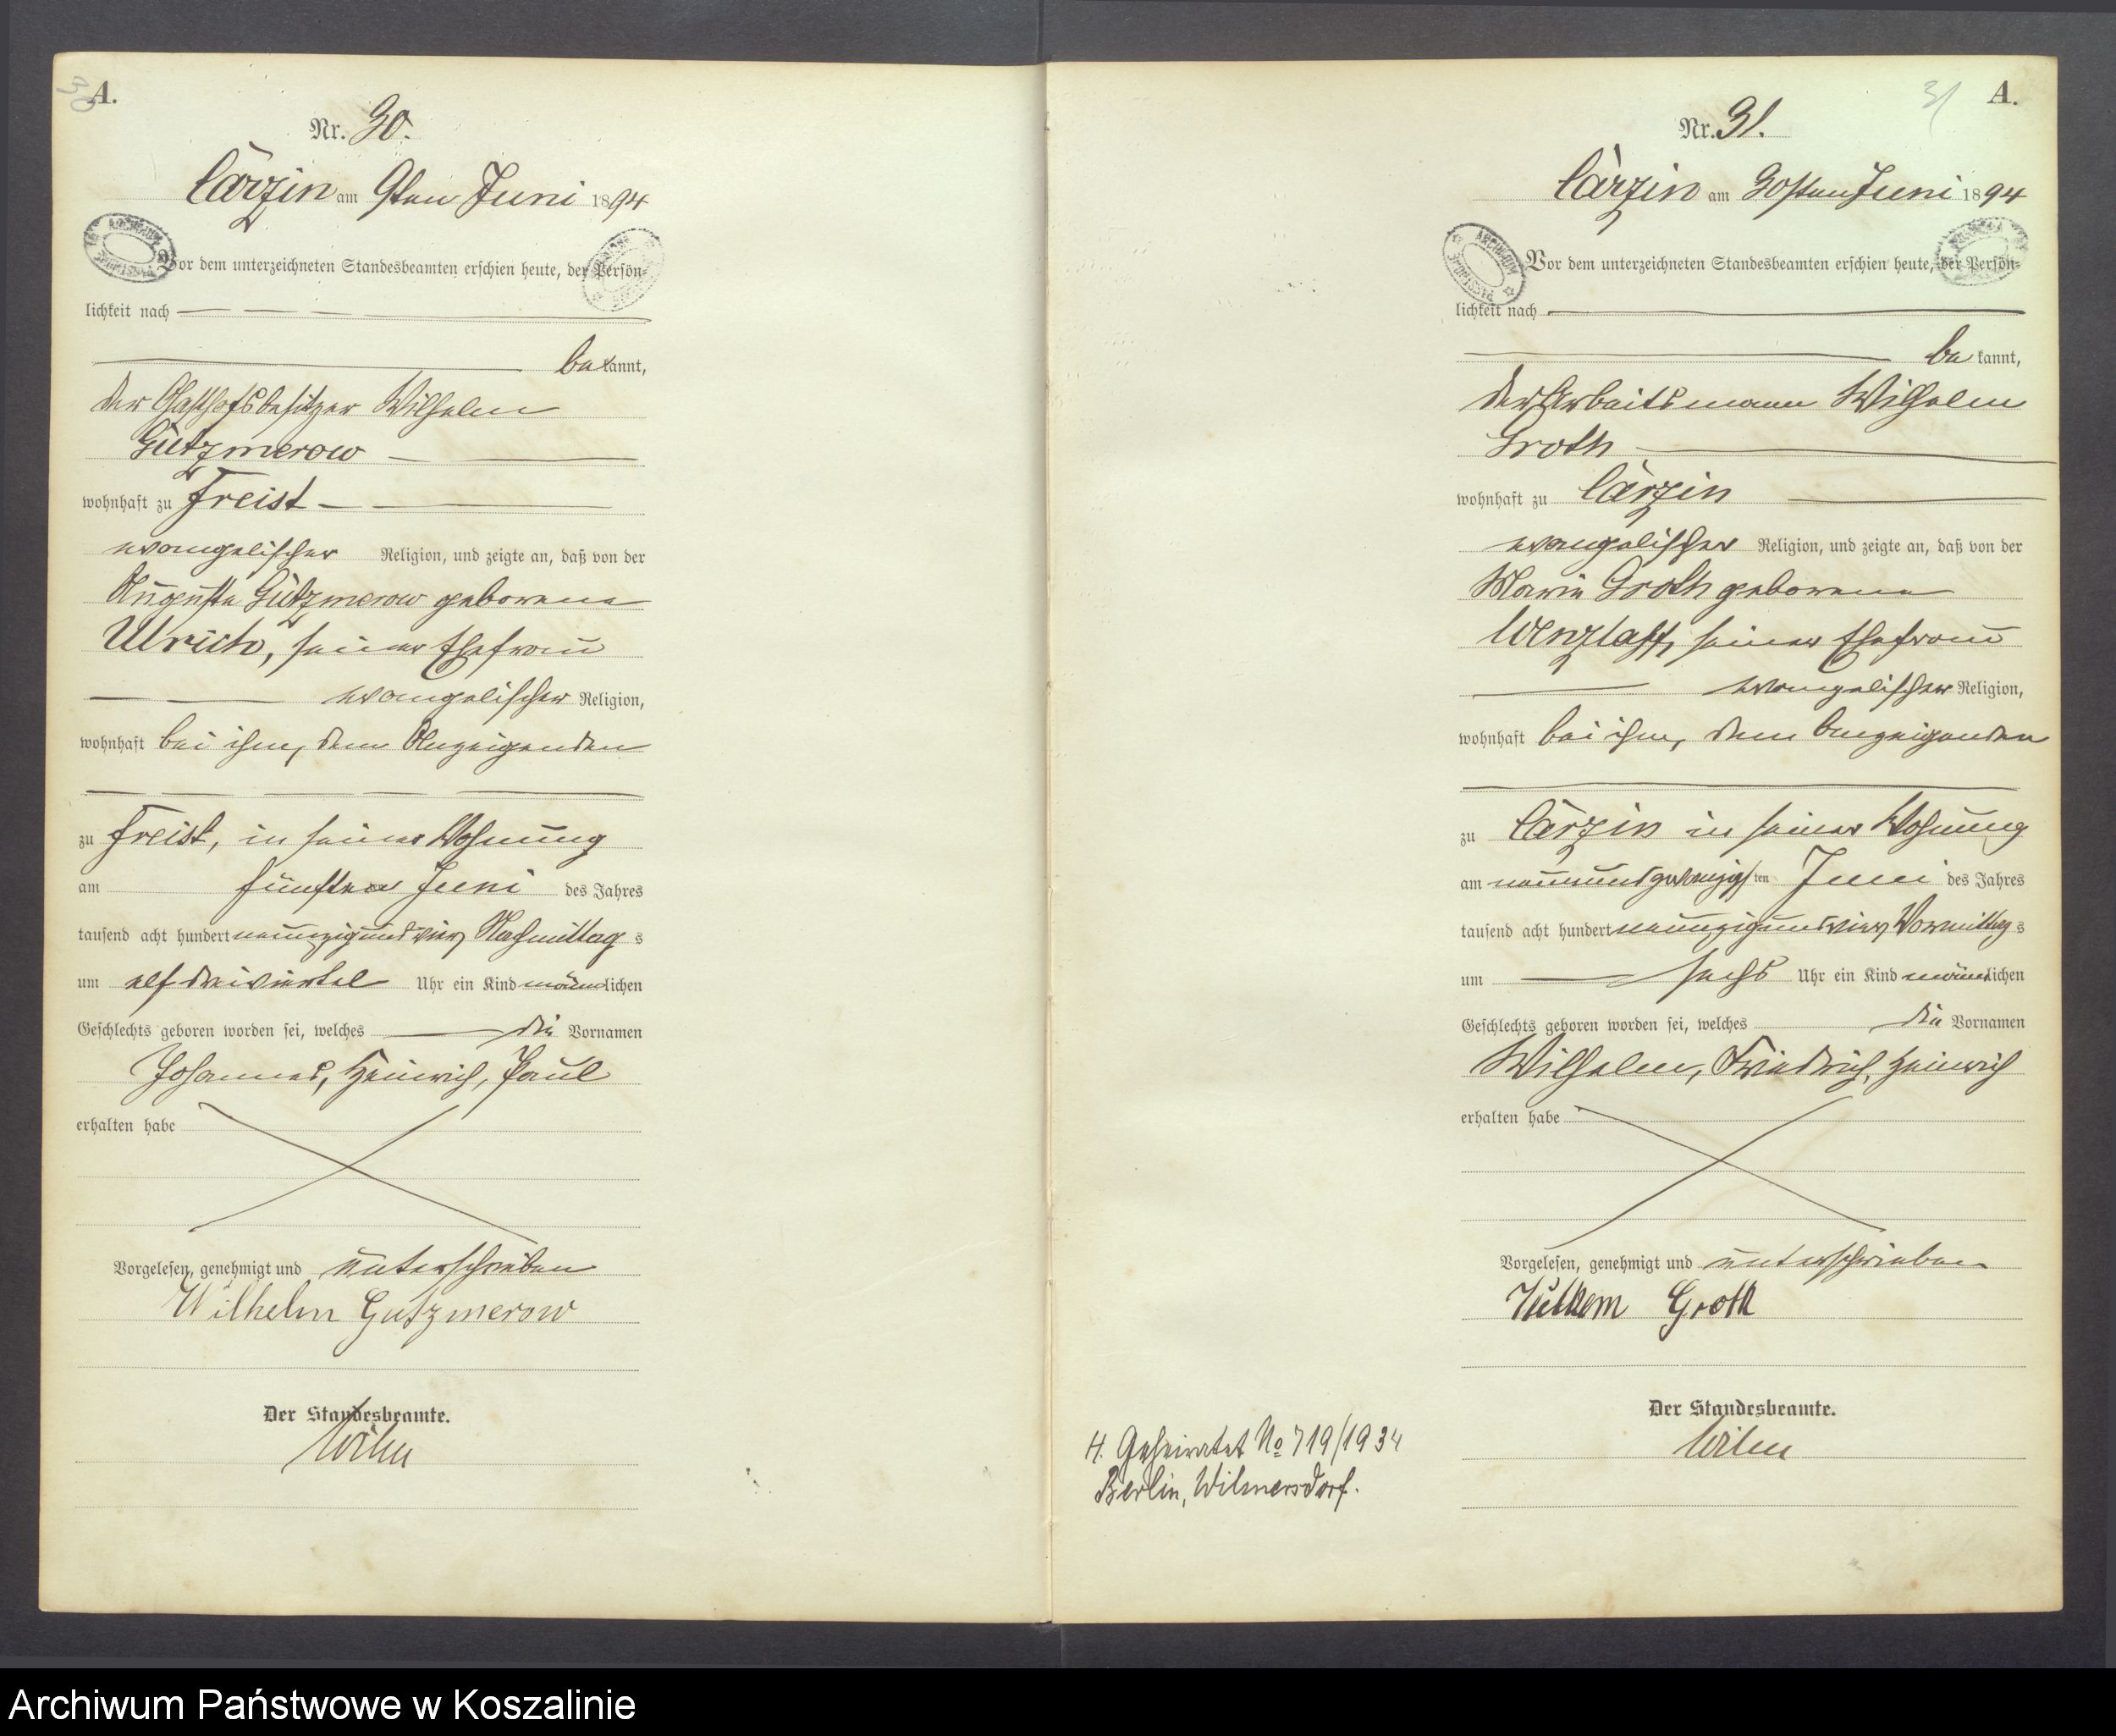 30
A.
Nr. 30.
Carzin am 9ten Juni 1894
Vor dem unterzeichneten Standesbeamten erschien heute, der Persön-
lichkeit nach
bekannt,
der Gasthofsbesitzer Wilhelm
Gützmerow
wohnhaft zu Freist
evangelischer Religion, und zeigte an, daß von der
Auguste Gützmerow geborene
Ulrich, seiner Ehefrau
evangelischer Religion,
wohnhaft bei ihm, dem Anzeigenden
zu Freist, in seiner Wohnung
am fünften Juni des Jahres
tausend acht hundert neunzig und vier, Nachmittags
um elf dreiviertel Uhr ein Kind männlichen
Geschlechts geboren worden sei, welches die Vornamen
Johannes, Heinrich, Paul
erhalten habe
Vorgelesen, genehmigt und unterschrieben
Wilhelm Gutzmerow
Der Standesbeamte.
Wilm
31
A.
Nr. 31.
Carzin am 30sten Juni 1894
ARCHIWUM
Vor dem unterzeichneten Standesbeamten erschien heute, der Persön-
lichkeit nach
bekannt,
der Arbeitsmann Wilhelm
Groth
wohnhaft zu Carzin
evangelischer Religion, und zeigte an, daß von der
Marie Groth geborene
Wenzlaff, seiner Ehefrau
evangelischer Religion,
wohnhaft bei ihm, dem Anzeigenden
zu Carzin in seiner Wohnung
am neunundzwanzigsten Juni des Jahres
tausend acht hundert neunzig und vier, Vormittags
um sechs Uhr ein Kind männlichen
Geschlechts geboren worden sei, welches die Vornamen
Wilhelm, Friedrich, Heinrich
erhalten habe
Vorgelesen, genehmigt und unterschrieben
Wilhem Groth
Der Standesbeamte.
Wilm
H. Geheiratet No 719/1934
Berlin, Wilmersdorf.
Archiwum Państwowe w Koszalinie